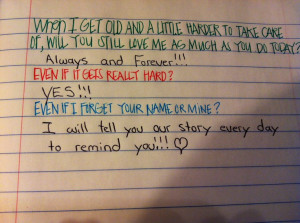 When I GET OLD AND A LITTLE HARDER TO TAKE CARE
OF, WILL YOU STILL LOVE ME AS MUCH AS YOU DO TODAY?
Always and Forever!!!
EVEN IF IT GETS REALLY HARD?
YES!!!
EVEN IF I FORGET YOUR NAME OR MINE?
I will tell you our story every day
to remind you!!! ♡